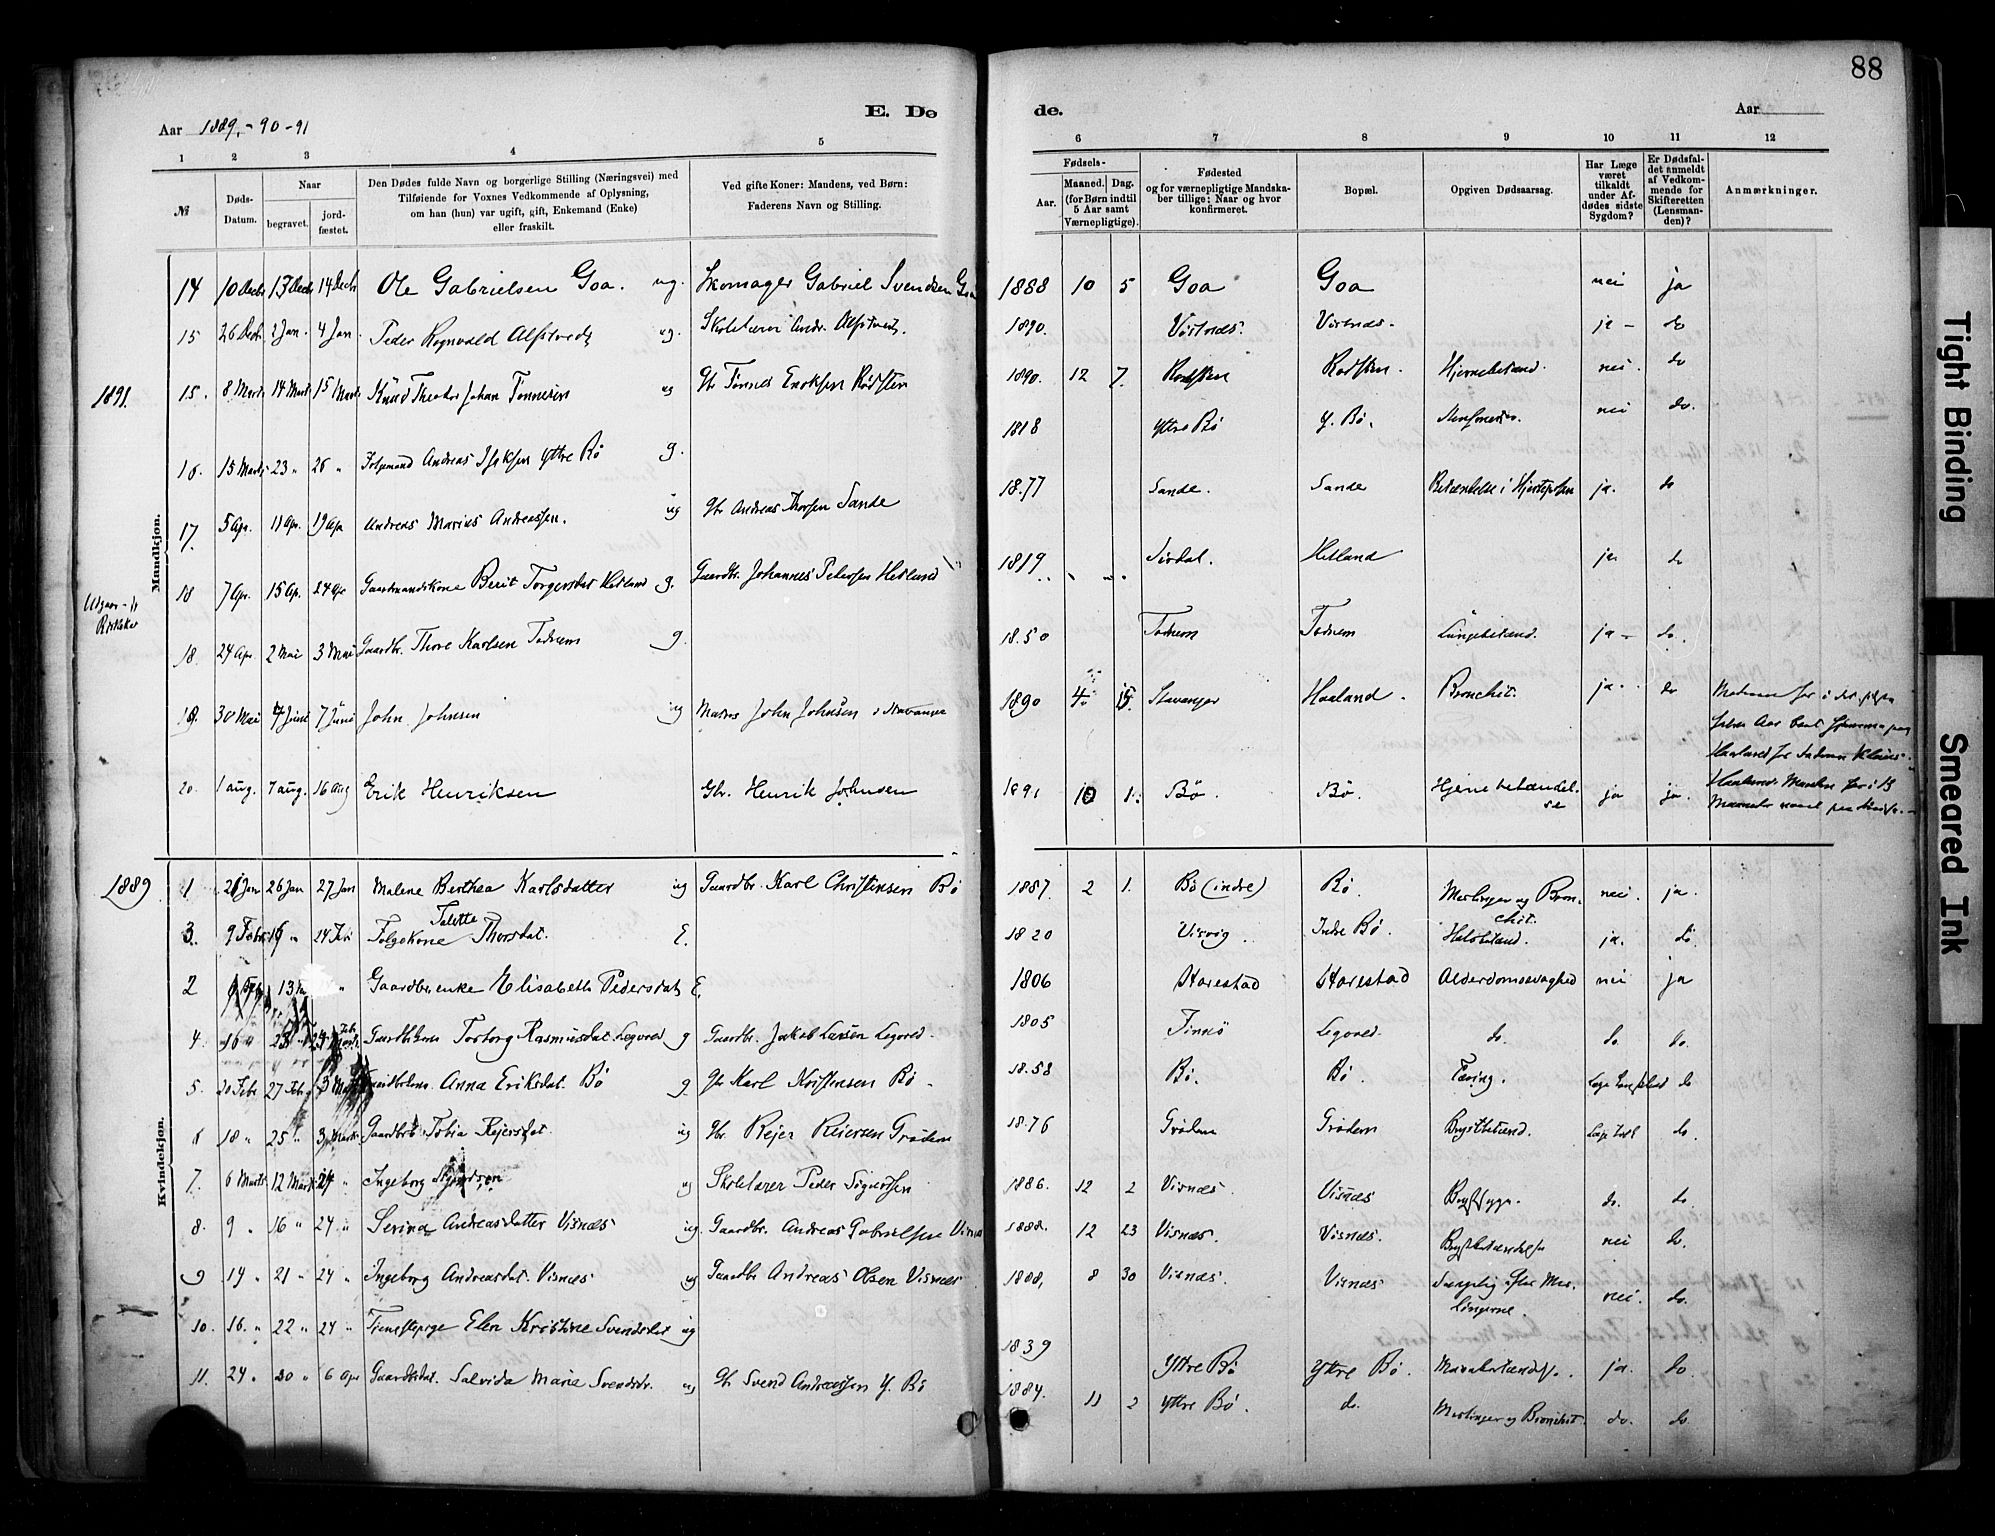 88
E. Dø de.
Aar 1889.-90-91
Aar
1 2 3 4 5 6 7 8 9 10 11 12
№
Døds-Datum.
Naar
begravet.
jordfæstet.
Den Dødes fulde Navn og borgerlige Stilling (Næringsvei) med
Tilføiende for Voxnes Vedkommende af Oplysning,
om han (hun) var ugift, gift, Enkemand (Enke)
eller fraskilt.
Ved gifte Koner: Mandens, ved Børn:
Faderens Navn og Stilling.
Fødsels-
Aar.
Maaned. Dag.
(for Børn indtil
5 Aar samt
Værnepligtige).
Fødested
og for værnepligtige Mandska-
ber tillige: Naar og hvor
konfirmeret.
Bopæl.
Opgiven Dødsaarsag.
Har Læge
været
tilkaldt
under Af-
dødes sidste
Sygdom?
Er Dødsfal-
det anmeldt
af Vedkom-
mende for
Skifteretten
(Lensman-
den)?
Anmærkninger.
Mandkjøn.
14 10 Decbr 13 Decbr 14 Decbr Ole Gabrielsen Goa. ug. Skomager Gabriel Svendsen Goa 1888 10 5 Goa Goa nei ja
15 26 Decbr 2 Jan. 4 Jan. Peder Rognvald Alfstvedt ug. Skolelærer Andr. Alfstvedt. 1890. Visnæs. Visnæs. ja - do
1891.
15. 8 Marts 14 Marts 15 Marts Knud Theodor Johan Tønnesen ug Gbr Tønnes Enoksen Rødsten 1890. 12 7. Rødsten Rødsten. Hjernebetænd. nei. do
16. 15 Marts 23 " 26 " Andreas Isaksen Yttre Bø g. 1818 Yttre Bø Y. Bø. nei do.
17. 5 Ap. 11 Ap. 19 Ap Andreas Marius Andreassen. ug Gbr Andreas Thorsen Sande 1877 Sande. Sande Betændelse i ja. do
18 7 Ap. 15 Ap. 24 Ap Gaardmandskone Berit Torgersdat Hetland g. Gaardbr. Johannes Pedersen Hetland 1819 Sirdal. Hetland ja do
18. 24 Ap. 2 Mai 3 Mai Gaardbr. Thore Karlsen Todnem g. 1850 Todnem Todnem Lungebetænd. ja - do.
19. 30 Mai 4 Juni 7 Juni John Johnsen ug John Johnsen i Stavanger 1890 4. 15. Stavanger Haaland. Bronchit. ja. do
20. 1 Aug. 7 Aug. 16 Aug Erik Henriksen Gbr. Henrik Johnsen 1891 10 1. Bø. Bø. Hjernebetændel-
se ja ja.
1889
Kvindekjøn.
1 21 Jan 26 Jan 27 Jan Malene Berthea Karlsdatter ug Gaardbr. Karl Christensen Bø 1887 2 1. Bø (indre) Bø. Meslinger og Bron-
chit. nei. ja.
3. 9 Febr. 16 " 24 Febr Folgekone Talette Thorsdat. E. 1820 Visvig Indre Bø. Halsbetænd. ja. do.
2 13 " Gaardbr.enke Elisabeth Pedersdat E. 1806 Harestad Harestad Alderdomssvaghed nei ja
4. 16 " 23 " Torborg Rasmusdat. Legored g Gaardbr. Jakob Larsen Legored. 1805 Finnø Legored. do. do. do.
5. 20 Febr 27 Feb. 3 Anna Eriksdat. Bø g. Gbr Karl Kristensen Bø. 1858 Bø. Bø. Tæring. do
6 18 " 25 " 3 Marts Tobia Rejersdat. ug Gbr. Rejer Reiersen Grødem 1876 Grødem Grødem Brystbetænd. do.
7. 6 Marts 12 Marts 24 " Ingeborg ug Skolelærer Peder Sigurdsen 1886. 12 2 Visnæs. Visnæs Brystsyge. do. do.
8. 9 " 16 " 24 " Serina Andreasdatter Visnæs ug. Gaardbr. Andreas Gabrielsen Visnæs 1888. 12 23 Visnæs. Visnæs. Brystbetændelse nei do.
9 14 " 21 " 24 " Ingeborg Andreasdat. Visnæs ug Gaardbr Andreas Olsen Visnæs 1888, 8 30 Visnæs. Visnæs efter Mes-
lingerne. nei. do.
10. 16. " 22 " 24 " Tjenestepige Elen Kristine Svendsdat ug 1839 Yttre Bø Yttre Bø. ja. do.
11. 24 " 30 " 6 Apr Salvida Marie Svendsdr. ug Gbr Svend Andreassen Y. Bø 1884. 11 2 Yttre Bø. do. Meslinger og Bronchit. do. do.
Tight Binding
Smeared Ink